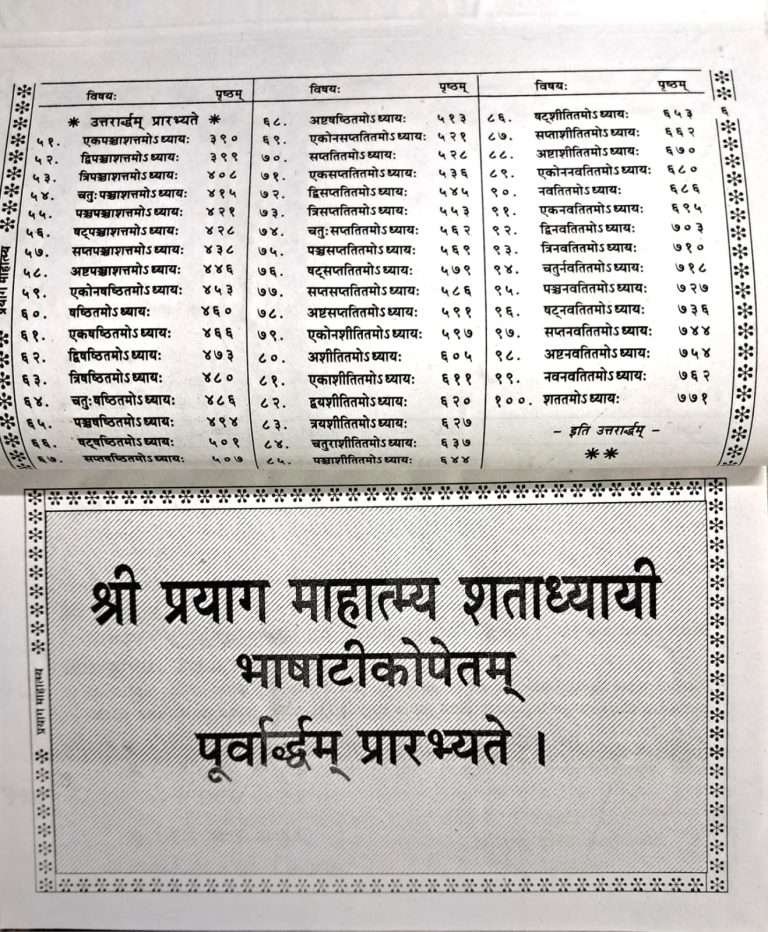 विषयः पृष्ठम्
* उत्तरार्द्धम् प्रारभ्यते *
५१. एकपञ्चाशत्तमोऽध्यायः ३९०
५२. द्विपञ्चाशत्तमोऽध्यायः ३९९
५३. त्रिपञ्चाशत्तमोऽध्यायः ४०८
५४. चतुःपञ्चाशत्तमोऽध्यायः ४१५
५५. पञ्चपञ्चाशत्तमोऽध्यायः ४२१
५६. षट्पञ्चाशत्तमोऽध्यायः ४२८
५७. सप्तपञ्चाशत्तमोऽध्यायः ४३८
५८. अष्टपञ्चाशत्तमोऽध्यायः ४४६
५९. एकोनषष्ठितमोऽध्यायः ४५३
६०. षष्ठितमोऽध्यायः ४६०
६१. एकषष्ठितमोऽध्यायः ४६६
६२. द्विषष्ठितमोऽध्यायः ४७३
६३. त्रिषष्ठितमोऽध्यायः ४८०
६४. चतुःषष्ठितमोऽध्यायः ४८६
६५. पञ्चषष्ठितमोऽध्यायः ४९४
६६. षट्षष्ठितमोऽध्यायः ५०१
६७. सप्तषष्ठितमोऽध्यायः ५०७
विषयः पृष्ठम्
६८. अष्टषष्ठितमोऽध्यायः ५१३
६९. एकोनसप्ततितमोऽध्यायः ५२१
७०. सप्ततितमोऽध्यायः ५२८
७१. एकसप्ततितमोऽध्यायः ५३६
७२. द्विसप्ततितमोऽध्यायः ५४५
७३. त्रिसप्ततितमोऽध्यायः ५५३
७४. चतुःसप्ततितमोऽध्यायः ५६२
७५. पञ्चसप्ततितमोऽध्यायः ५६९
७६. षट्सप्ततितमोऽध्यायः ५७९
७७. सप्तसप्ततितमोऽध्यायः ५८६
७८. अष्टसप्ततितमोऽध्यायः ५९१
७९. एकोनशीतितमोऽध्यायः ५९७
८०. अशीतितमोऽध्यायः ६०५
८१. एकाशीतितमोऽध्यायः ६११
८२. द्वयशीतितमोऽध्यायः ६२०
८३. त्रयशीतितमोऽध्यायः ६२७
८४. चतुराशीतितमोऽध्यायः ६३७
८५. पञ्चाशीतितमोऽध्यायः ६४४
विषयः पृष्ठम्
८६. षट्शीतितमोऽध्यायः ६५३
८७. सप्ताशीतितमोऽध्यायः ६६२
८८. अष्टाशीतितमोऽध्यायः ६७०
८९. एकोननवतितमोऽध्यायः ६८०
९०. नवतितमोऽध्यायः ६८६
९१. एकनवतितमोऽध्यायः ६९५
९२. द्विनवतितमोऽध्यायः ७०३
९३. त्रिनवतितमोऽध्यायः ७१०
९४. चतुर्नवतितमोऽध्यायः ७१८
९५. पञ्चनवतितमोऽध्यायः ७२७
९६. षट्नवतितमोऽध्यायः ७३६
९७. सप्तनवतितमोऽध्यायः ७४४
९८. अष्टनवतितमोऽध्यायः ७५४
९९. नवनवतितमोऽध्यायः ७६२
१००. शततमोऽध्यायः ७७१
- इति उत्तरार्द्धम् -
**
६
प्रयाग माहात्म्य
श्री प्रयाग माहात्म्य शताध्यायी
भाषाटीकोपेतम्
पूर्वार्द्धम् प्रारभ्यते ।
प्रयाग माहात्म्य